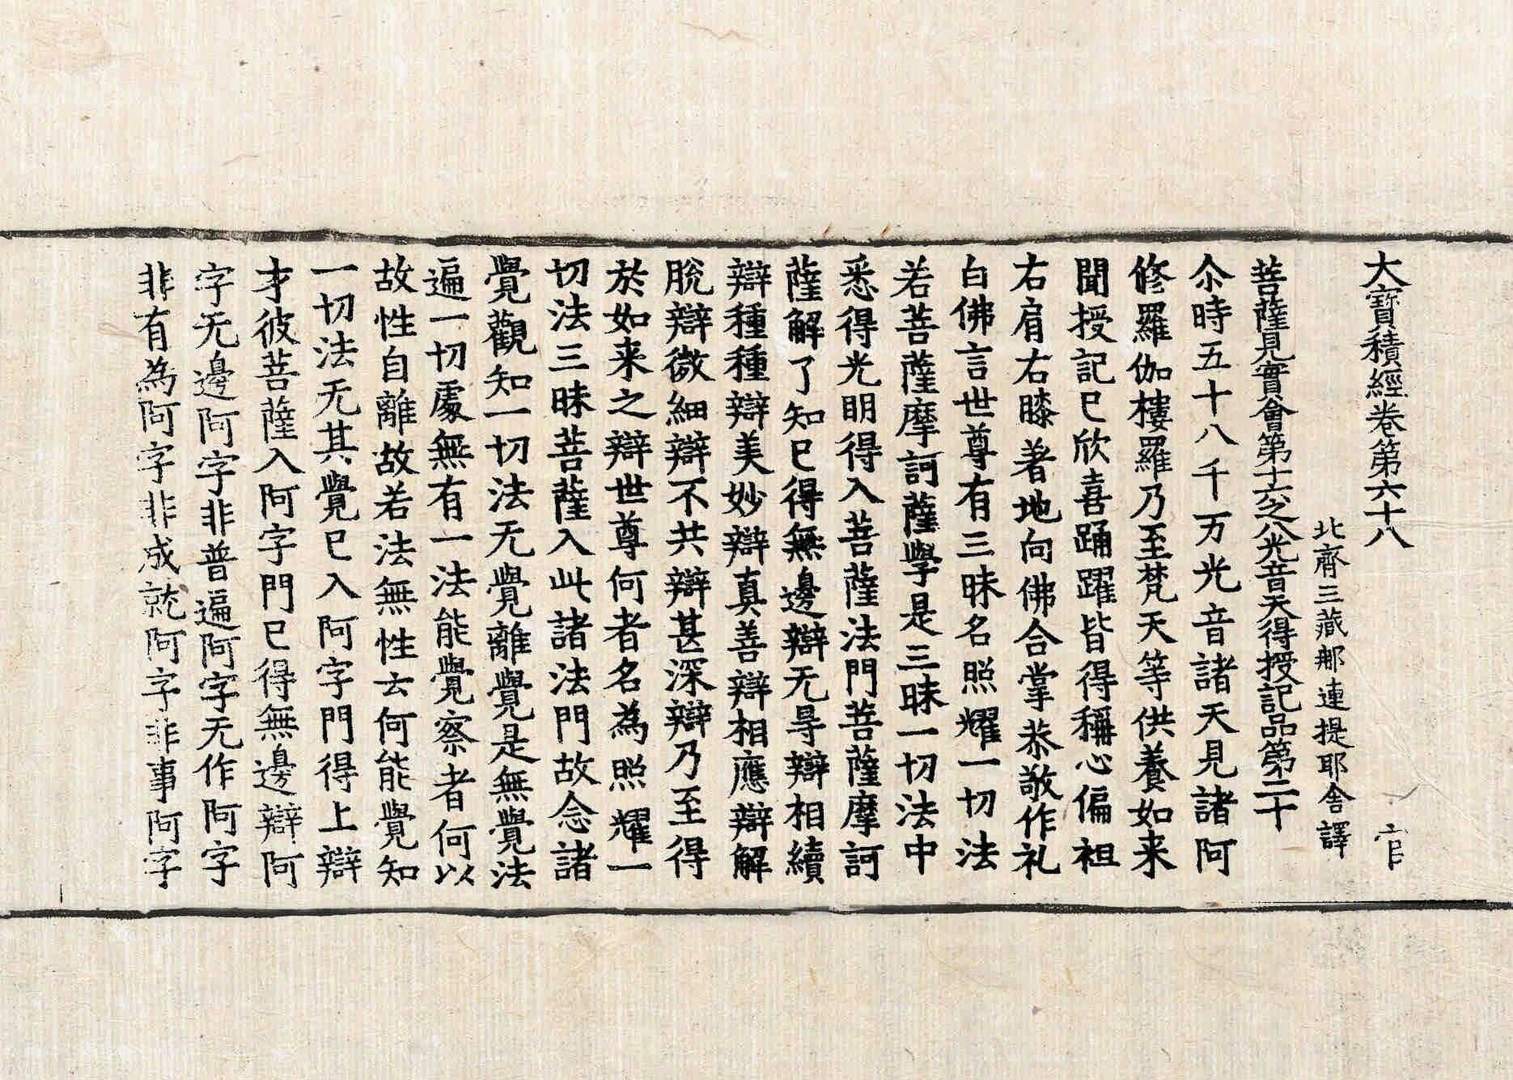 大寶積經卷第六十八 官
北齊三藏那連提耶舍譯
菩薩見實會第十六之八光音天得授記品第二十
尒時五十八千万光音諸天見諸阿
修羅伽樓羅乃至梵天等供養如来
聞授記已欣喜踊躍皆得稱心偏袒
右肩右膝著地向佛合掌恭敬作礼
白佛言世尊有三昧名照耀一切法
若菩薩摩訶薩學是三昧一切法中
悉得光明得入菩薩法門菩薩摩訶
薩解了知已得無邊辯无㝵辯相續
辯種種辯美妙辯真善辯相應辯解
脫辯微細辯不共辯甚深辯乃至得
於如来之辯世尊何者名為照耀一
切法三昧菩薩入此諸法門故念諸
覺觀知一切法无覺離覺是無覺法
遍一切處無有一法能覺察者何以
故性自離故若法無性云何能覺知
一切法无其覺已入阿字門得上辯
才彼菩薩入阿字門已得無邊辯阿
字无邊阿字非普遍阿字无作阿字
非有為阿字非成就阿字非事阿字